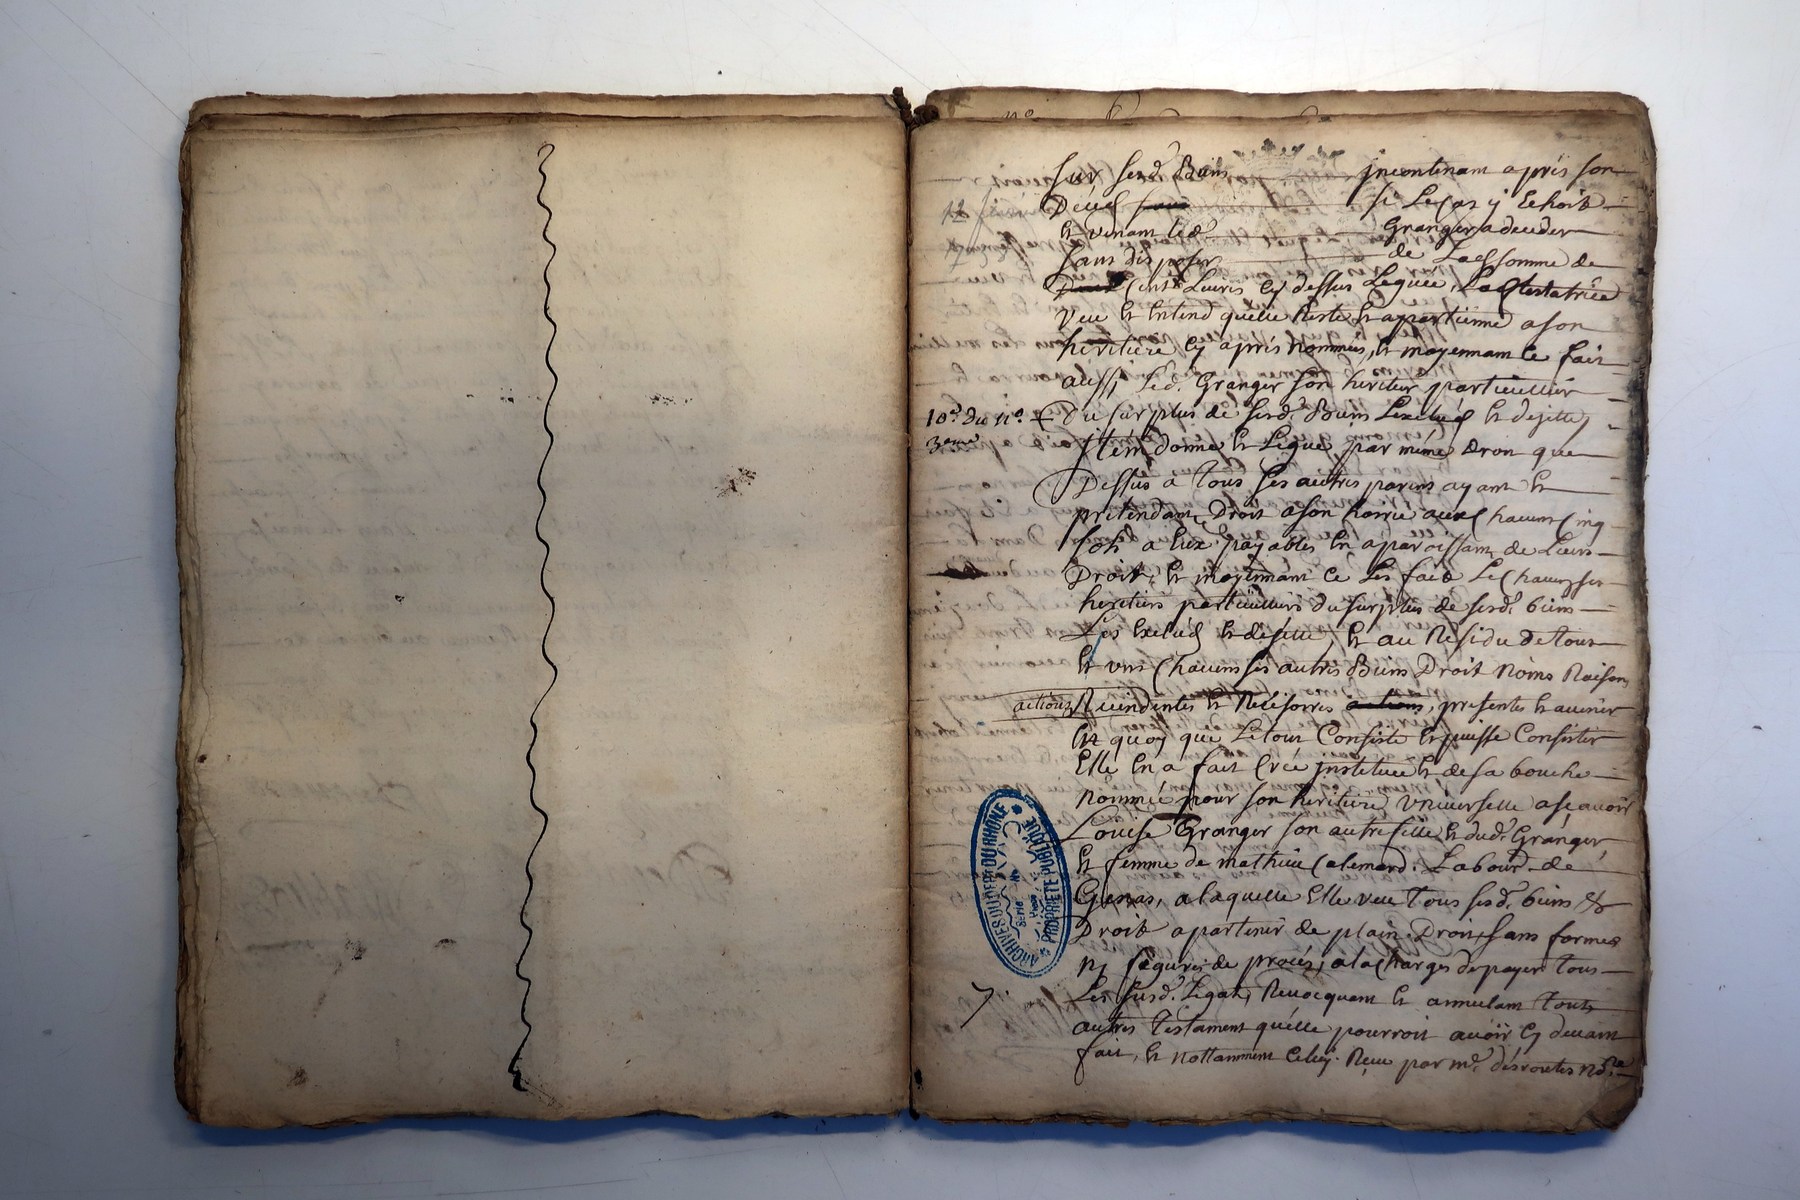 sur sesd. Biens incontinam apres son
12
Deced si le Cas y Echoit
Et venam led. Granger a deceder
sans disposer de Lad. somme de
Cent Livres cy dessus Leguée, Lad. testatrice
veut Et Entend quelle Reste Et apartienne a son
heritiere cy apres nommée, Et moyennam ce fait
aussy Led. Granger son heritier particullier
10.e du n.o Du surplus de sesd. Biens Lexclud Et dejette,
3eme Item donne Et Legue par méme droit que
Dessus a tous ses autres parens ayant Et
pretendant Droit a son hoirie a un Chacun Cinq
sols a Eux payables En aparoissam de Leurs
Droits, Et moyennant ce Les fait Le Chacun ses
heritiers particulliers du surplus de sesd. biens
Les Exclud Et dejette, Et au Residu de tous
Et uns Chacuns ses autres Biens Droit Noms Raisons
actions Rescindentes Et Rescisoires actions, presentes Et avenir
En quoy que Le tout Consiste Et puisse Consister
Elle En a fait Créé instituée Et de sa bouche
nommée pour son heritiere universelle a scavoir
Louise Granger son autre fille Et dud. Granger,
Et femme de mathieu Calemard Labour. de
Genas, a laquelle Elle veut tous sesd. biens &
Droits apartenir de plain Droit, sans formes
ny figures de procés, a la Charges de payer tous
Les susd. Legats, Revocquant Et annulam touts
autres testament qu'elle pourroit avoir cy devant
fait, Et nottamment Celuy Reçu par m.e desroutes no.re
ARCHIVES DU DEPT DU RHÔNE
PROPRIETE PUBLIQUE
Série